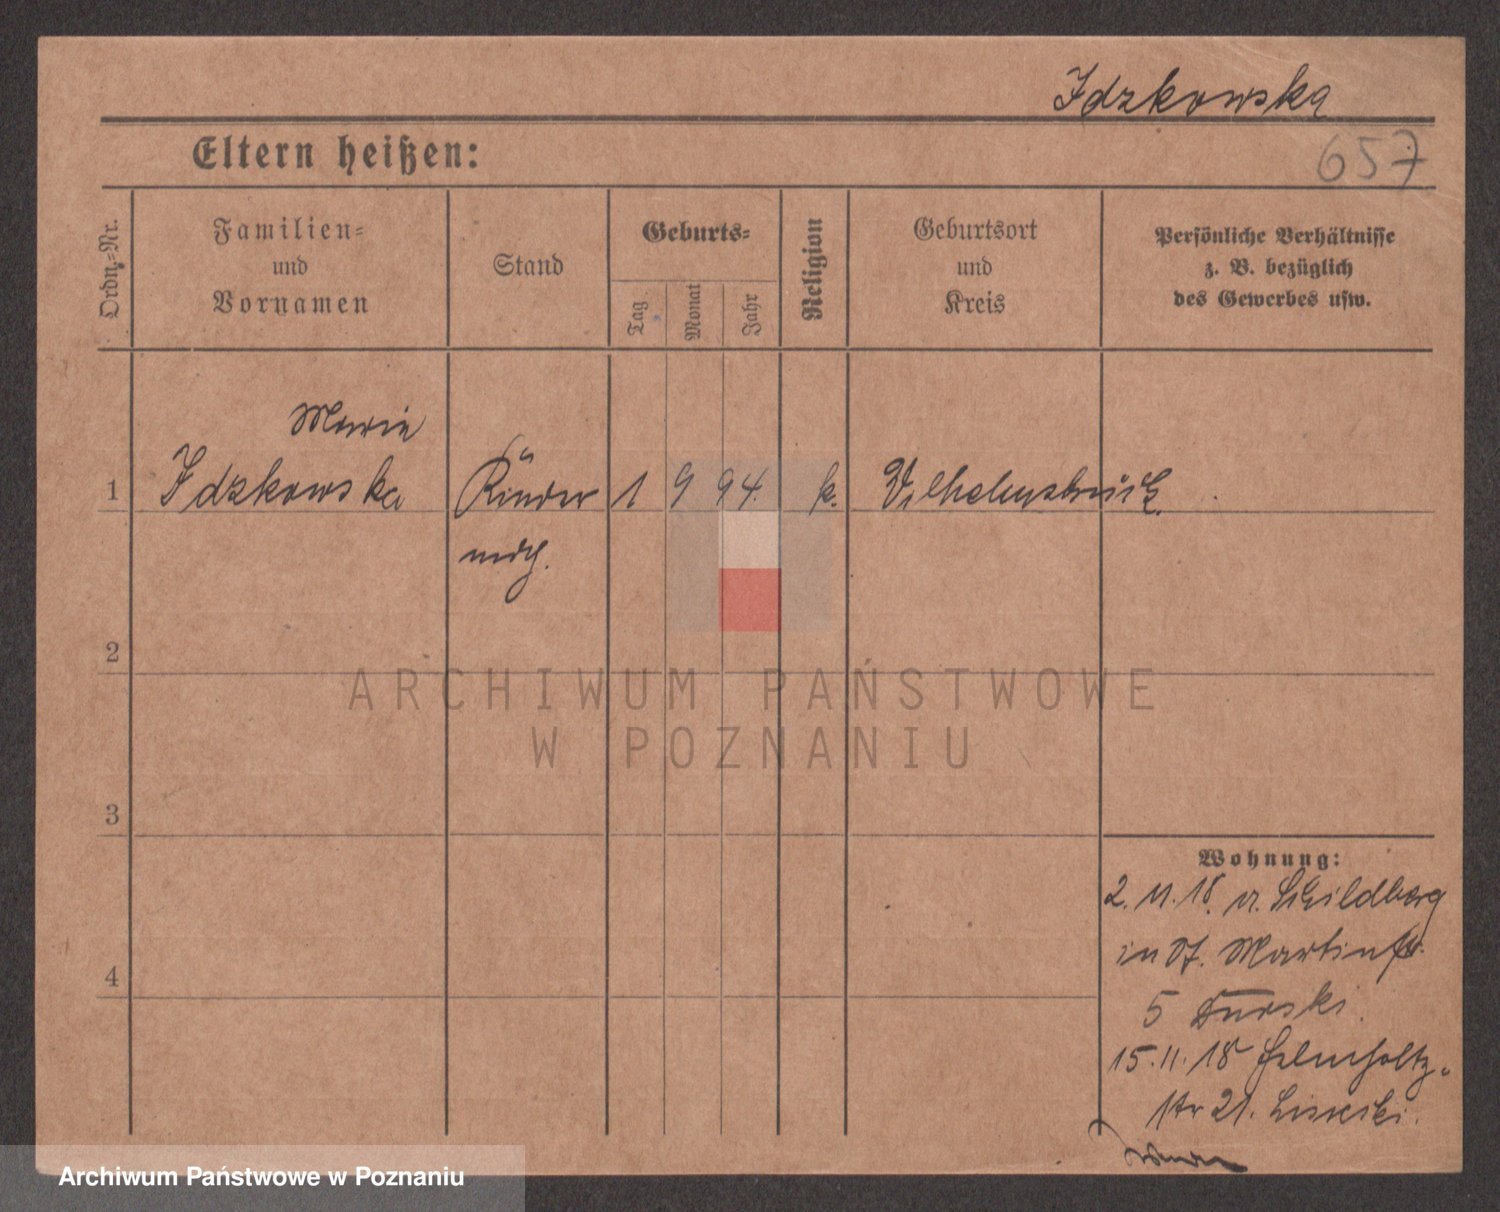 Idzkowska
657
Eltern heißen:
Ordn.-Nr.
Familien-
und
Vornamen
Stand
Geburts-
Tag
Monat
Jahr
Religion
Geburtsort
und
Kreis
Persönliche Verhältnisse
z. B. bezüglich
des Gewerbes usw.
Marie
1 Idzkowska Kinder 1 9 94. k. Wilhelmsbrück.
mdch.
2
ARCHIWUM PAŃSTWOWE
W POZNANIU
3
Wohnung:
2. 11. 18. v. Schildberg
in St. Martinstr.
4
5 Turski.
15. 11. 18 Helmholtz-
str 21. Lisiecki.
Archiwum Państwowe w Poznaniu